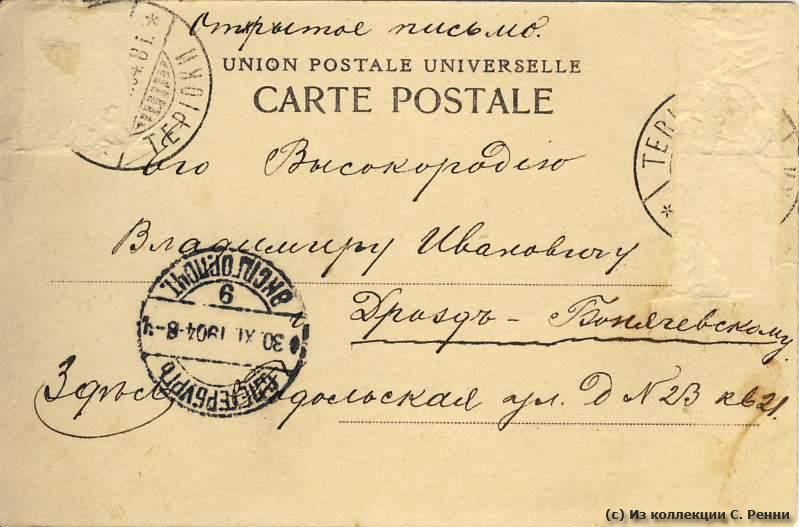 Открытое письмо.
UNION POSTALE UNIVERSELLE
CARTE POSTALE
ТЕРІОКИ
ого Высокородію
Владимиру Ивановичу
Дроздъ-Бонячевскому
Здѣсь Подольская ул. Д N 23 кв 21.
ЭКСП.ГОР.ПОЧТ.
9
30 XI 1904
(c) Из коллекции С. Ренни